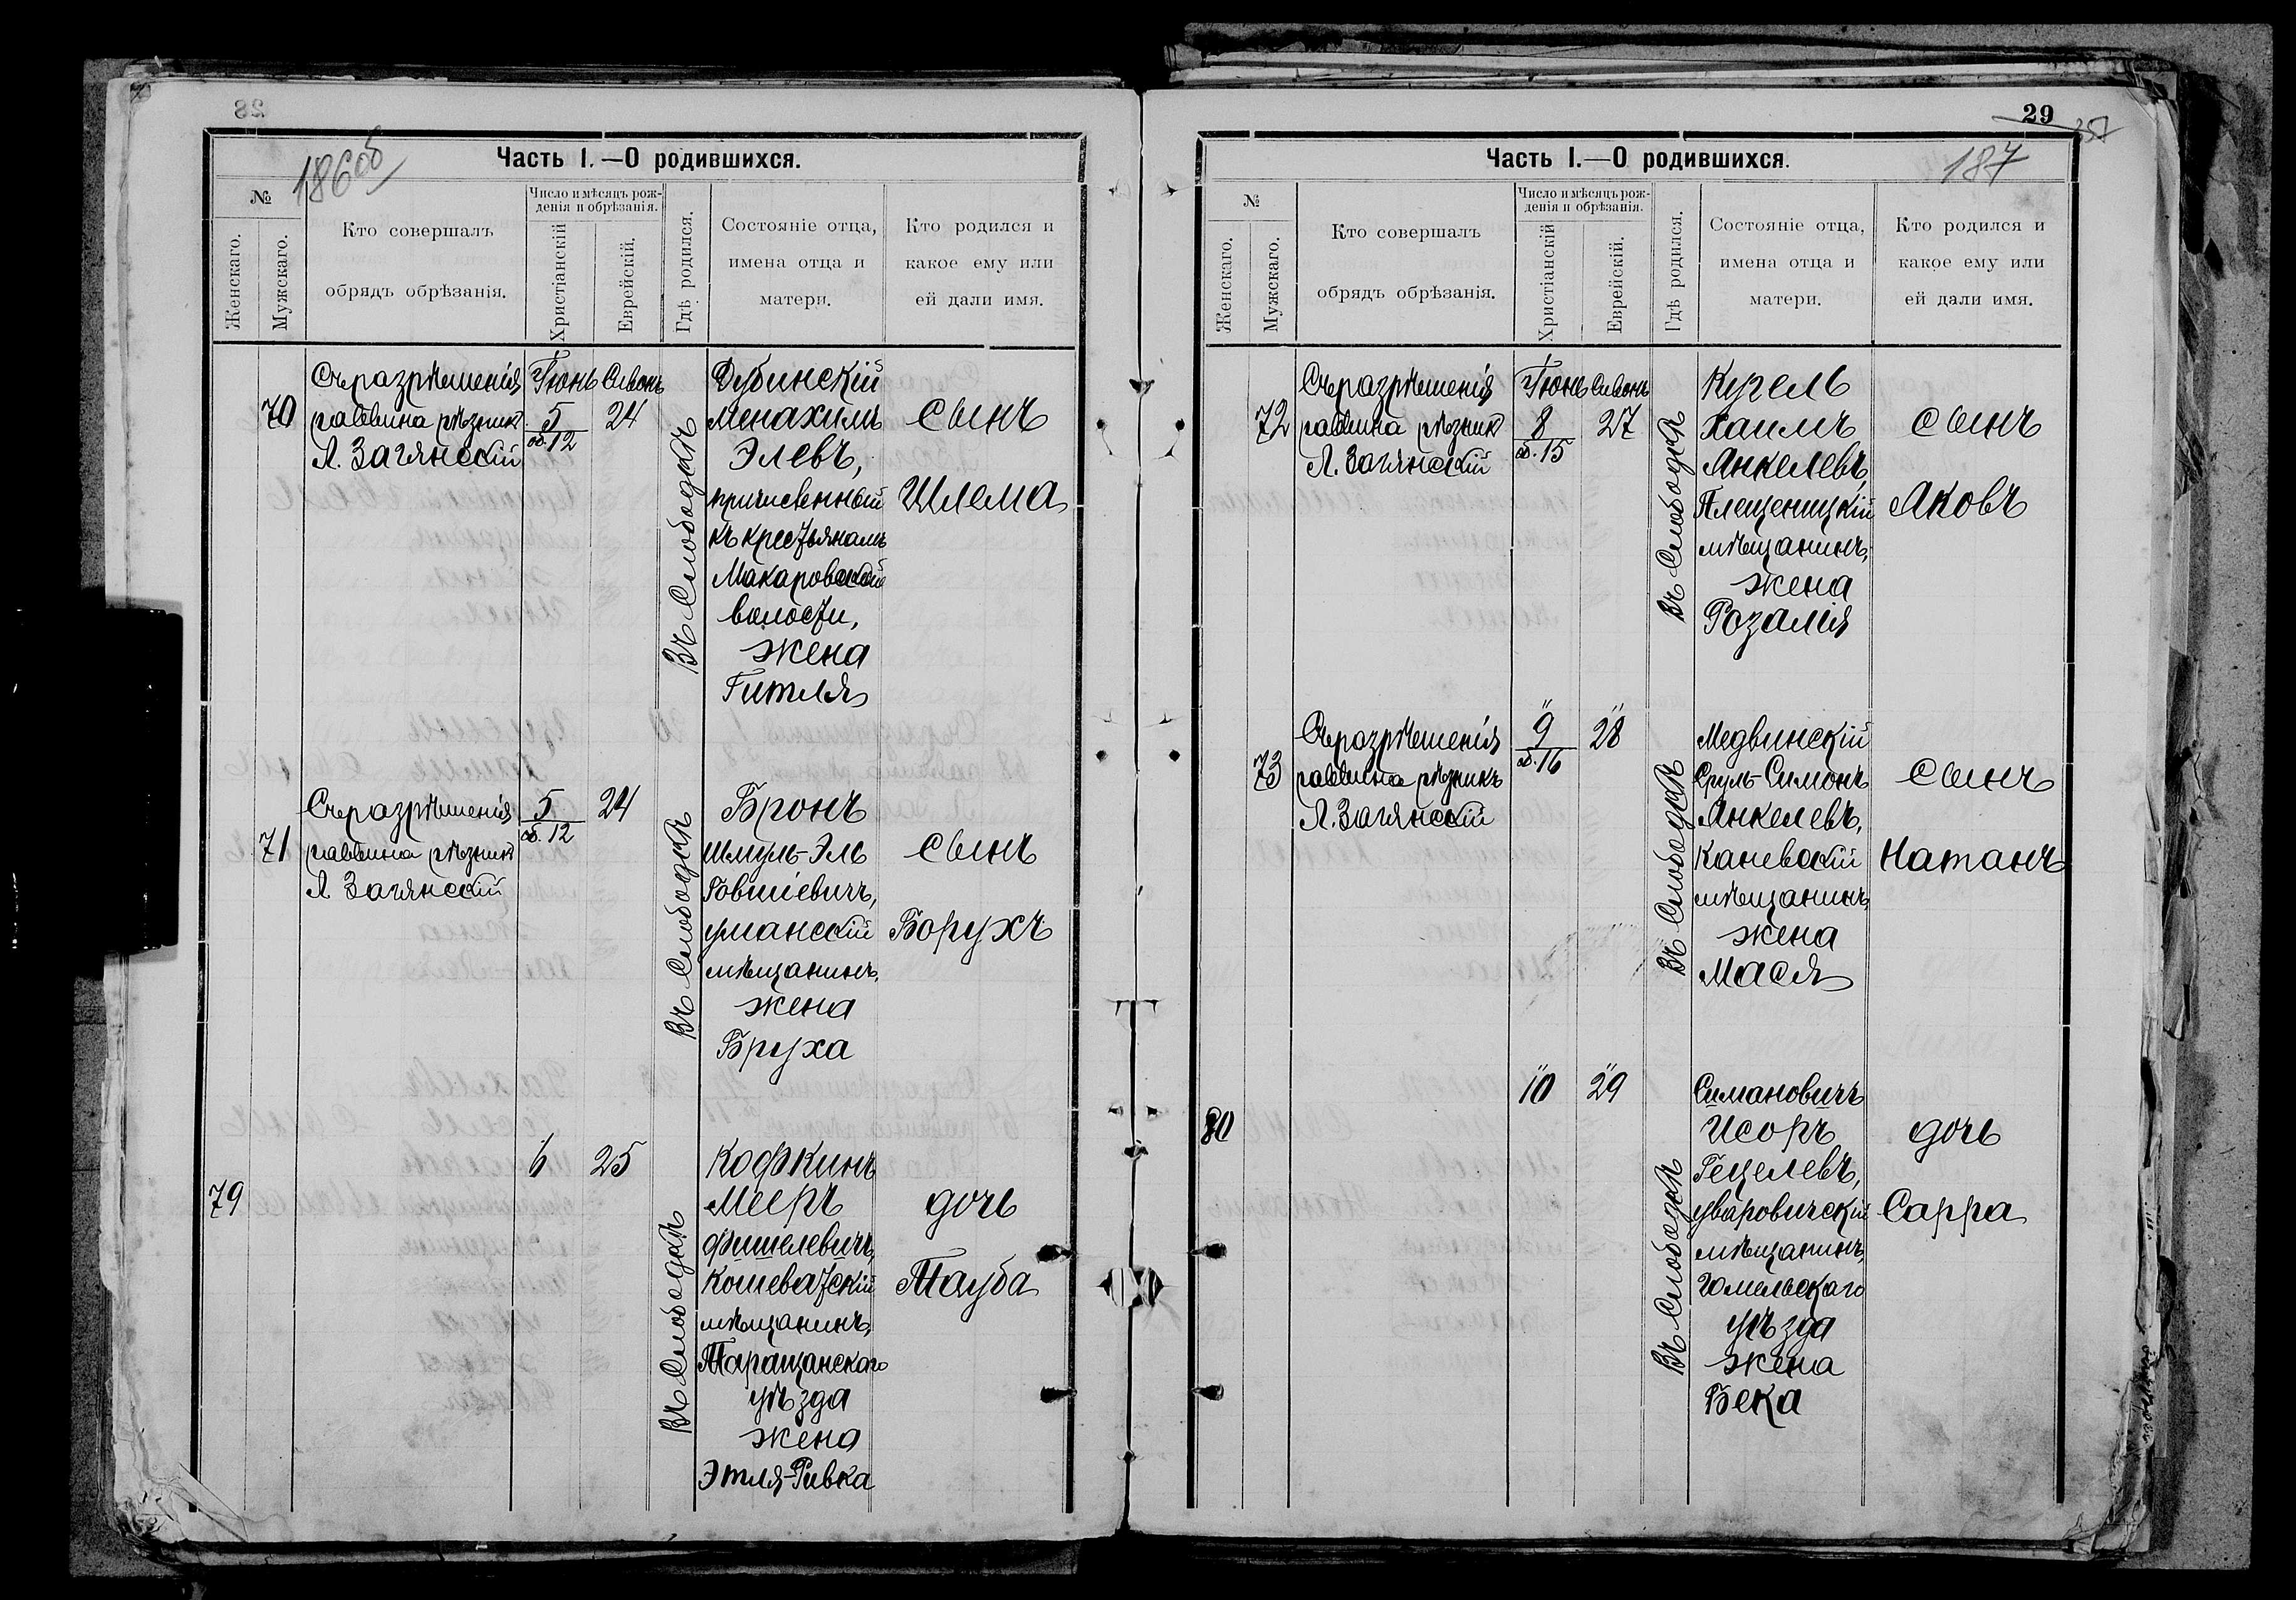 186 об
Часть I.—О родившихся.
№
Женскаго.
Мужскаго.
Кто совершалъ
обрядъ обрѣзанія.
Число и мѣсяцъ рож-
денія и обрѣзанія.
Христіанскій
Еврейскій.
Гдѣ родился.
Состояніе отца,
имена отца и
матери.
Кто родился и
какое ему или
ей дали имя.
70
Съ разрѣшенія
раввина рѣзник
Л. Загянскій
Іюнь
5
об. 12
Сивонъ
24
Въ Слободахъ
Дубинскій
Менахимъ
Элевъ,
причисленный
къ крестьянамъ
Макаровской
волости,
жена
Гитля
сынъ
Шлема
71
Съ разрѣшенія
раввина рѣзник
Л Загянскій
5
об. 12
24
Въ Слободахъ
Бронъ
Шмуль-Эль
Говшіевичъ,
уманскій
мѣщанинъ,
жена
Бруха
сынъ
Борухъ
79
6
25
Въ Слободахъ
Кофкинъ
Мееръ
Фишелевичъ,
Кошеватскій
мѣщанинъ,
Таращанскаго
уѣзда
жена
Этля-Ривка
дочь
Тауба
29
187
Часть I.—О родившихся.
№
Женскаго.
Мужскаго.
Кто совершалъ
обрядъ обрѣзанія.
Число и мѣсяцъ рож-
денія и обрѣзанія.
Христіанскій
Еврейскій.
Гдѣ родился.
Состояніе отца,
имена отца и
матери.
Кто родился и
какое ему или
ей дали имя.
72
Съ разрѣшенія
раввина рѣзник
Л. Загянскій
Іюнь
8
об. 15
Сивонъ
27
Въ Слободахъ
Кугель
Хаимъ
Янкелевъ,
Плещеницкій
мѣщанинъ,
жена
Розалія
сынъ
Яковъ
73
Съ разрѣшенія
раввина рѣзникъ
Л. Загянскій
"
9
об. 16
"
28
Въ Слободахъ
Медвинскій
Сруль-Симонъ
Янкелевъ,
каневскій
мѣщанинъ,
жена
Мася
сынъ
Натанъ
80
"
10
"
29
Въ Слободахъ
Симановичъ
Исоръ
Гецелевъ,
уваровичскій
мѣщанинъ,
гомельскаго
уѣзда
жена
Бека
дочь
Сарра